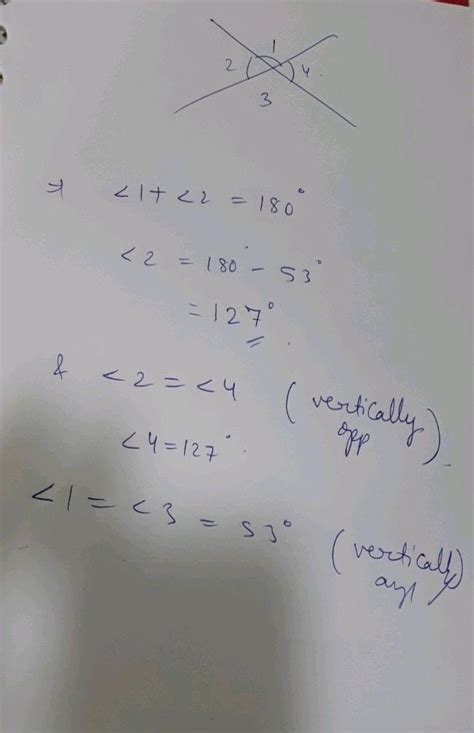 1
2 4
3
⇒ <1+ <2 = 180°
<2 = 180° - 53°
= 127°
& <2 = <4 (vertically opp)
<4 = 127°
<1 = <3 = 53° (vertically